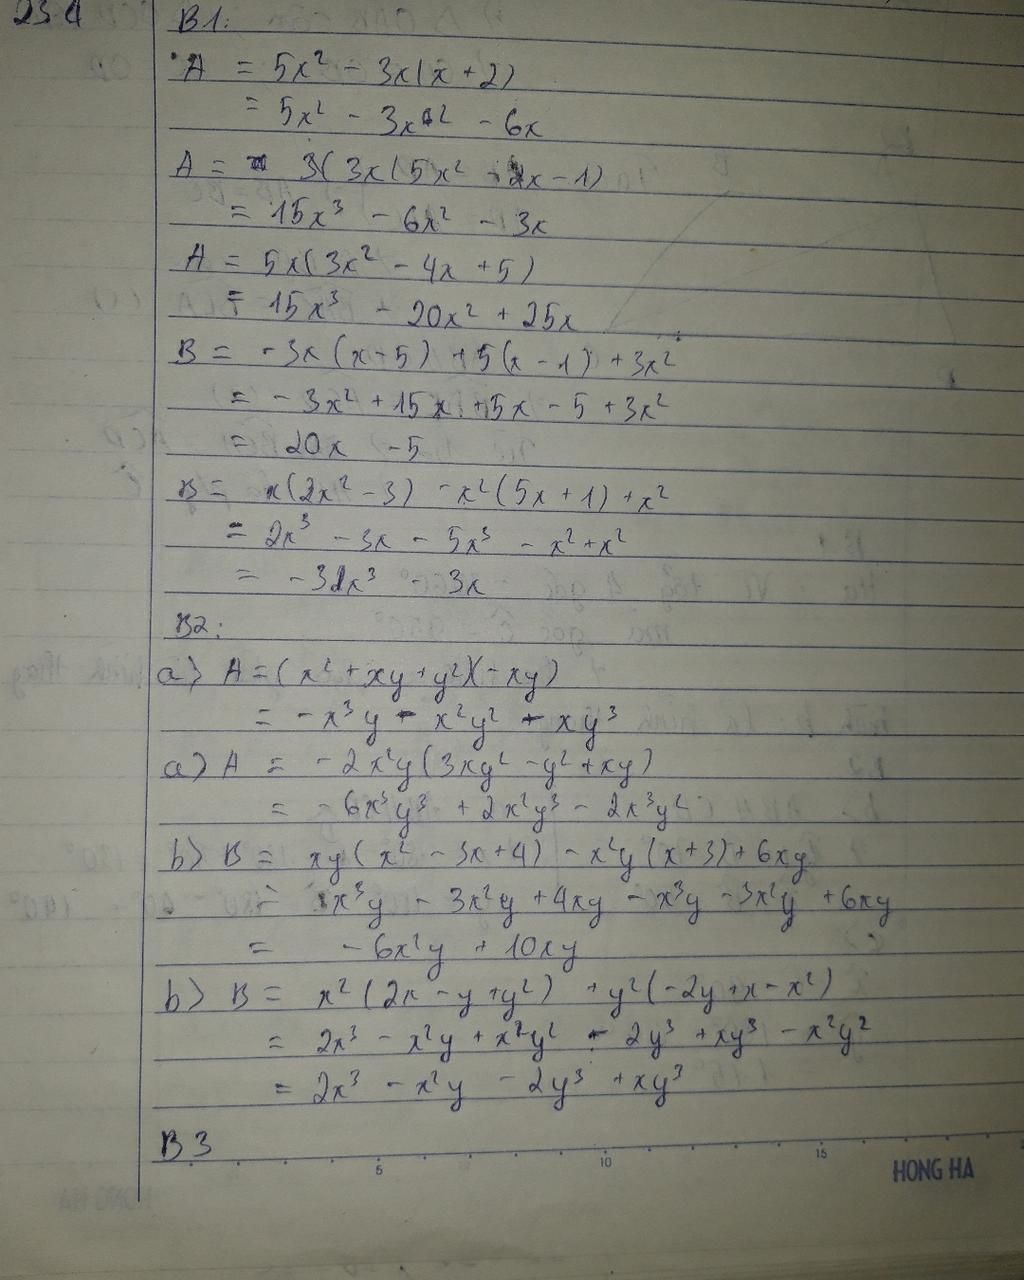 23.4
B1:
A = 5x² - 3x(x+2)
= 5x² - 3x² - 6x
A = 3x(5x² - 2x - 1)
= 15x³ - 6x² - 3x
A = 5x(3x² - 4x + 5)
= 15x³ - 20x² + 25x
B = -3x(x-5) + 5(x-1) + 3x²
= -3x² + 15x + 5x - 5 + 3x²
= 20x - 5
B = x(2x² - 3) - x²(5x + 1) + x²
= 2x³ - 3x - 5x³ - x² + x²
= -3x³ - 3x
B2:
a) A = (x² + xy + y²)(-xy)
= -x³y - x²y² - xy³
a) A = -2x²y(3xy² - y² + xy)
= -6x³y³ + 2x²y³ - 2x³y²
b) B = xy(x² - 3x + 4) - x²y(x+3) + 6xy
= x³y - 3x²y + 4xy - x³y - 3x²y + 6xy
= -6x²y + 10xy
b) B = x²(2x - y + y²) + y²(-2y + x - x²)
= 2x³ - x²y + x²y² - 2y³ + xy³ - x²y²
= 2x³ - x²y - 2y³ + xy³
B3
5 10 15
HONG HA